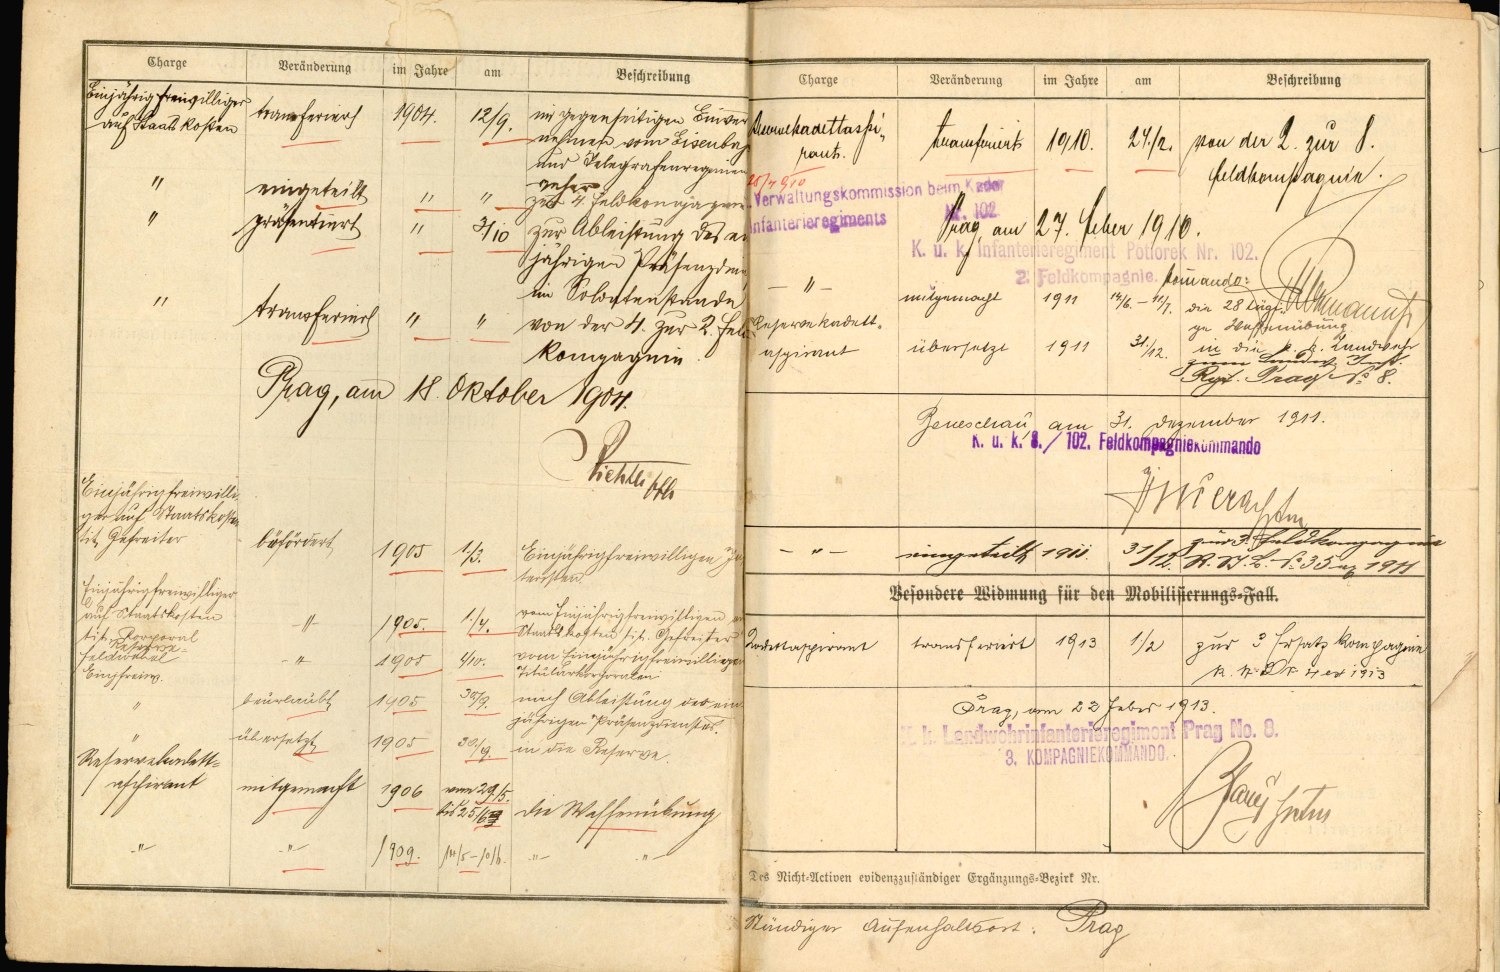 Charge Veränderung im Jahre am Beschreibung
Einjährig freiwilliger
auf Staatskosten
transferiert 1904. 12/9. im gegenseitigen Einver
nehmen vom Eisenbah
und Telegrafenregimen
〃 eingeteilt 〃 〃 zur 4. Feldkompagnie
〃 präsentiert 〃 3/10 zur Ableistung des ei
jährigen Präsenzdien
im Soldatenstande
〃 transferiert 〃 〃 von der 4. zur 2. Feld
kompagnie.
Prag, am 18. Oktober 1904.
Einjährigfreiwilli-
ger auf Staatskosten
tit. Gefreiter
befördert 1905 1/3. Einjährigfreiwilligen
Einjährigfreiwilliger
auf Staatskosten
tit. Korporal
〃 1905. 1/4. vom Einjährigfreiwilligen
Staatskosten tit. Gefreiter
Reserve-
feldwebel
Einjfreiw.
〃 1905 1/10. vom Einjährigfreiwilligen
Titularkorporalen
〃 beurlaubt 1905 30/9. nach Ableistung des ein
jährigen Präsenzdienstes.
〃 übersetzt 1905 30/9 in die Reserve.
Reservekadett-
aspirant
mitgemacht 1906 vom 29/5.
bis 25/6 die Waffenübung
〃 〃 1909. 14/5-10/6. 〃 〃
Charge Veränderung im Jahre am Beschreibung
Reservekadettaspi-
rant.
transferiert 1910. 24/2. von der 2. zur 8.
Feldkompagnie.
Verwaltungskommission beim Kader
Infanterieregiments Nr. 102
Prag, am 27. Feber 1910.
K. u. k. Infanterieregiment Potiorek Nr. 102.
2. Feldkompagnie.
Komando:
〃 mitgemacht 1911 14/6.-11/7. die 28 tägi-
ge Waffenübung
Reservekadett-
aspirant
übersetzt 1911 31/12. in die k. k. Landwehr
zum Landw. Inft.
Rgt. Prag № 8.
Beneschau, am 31. Dezember 1911.
K. u. k. 8./102. Feldkompagniekommando
〃 eingeteilt 1911 31/12. zur 3. Feldkompagnie
1911
Besondere Widmung für den Mobilisierungs-Fall.
Kadettaspirant transferiert 1913 1/2 zur 3 Ersatzkompagnie
1913
Prag, am 22 Feber 1913.
K. k. Landwehrinfanterieregiment Prag No. 8.
3. KOMPAGNIEKOMMANDO.
Des Nicht-Activen evidenzzuständiger Ergänzungs-Bezirk Nr.
Ständiger Aufenhaltsort: Prag